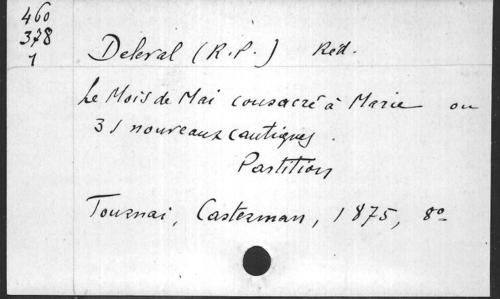 460
378
1
Deleral (R.P.) Réd.
Le Mois de Mai consacré à Marie ou
31 nouveaux cantiques.
Partition
Tournai, Casterman, 1875, 8º